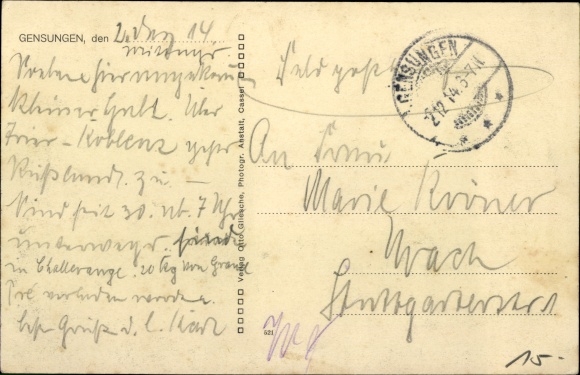 GENSUNGEN, den 2. Dez 14
mittags
Soeben hier angekom
kleiner Halt. Über
Trier - Koblenz geht's
Rußland zu —
Sind seit 30. 7 Uhr
unterwegs.
in Challerange. 20 kg von Grand
Pré verladen worden.
Gruß d. l. Karl
Verlag Otto Glissche, Photogr. Anstalt, Cassel
521
Feldpost
GENSUNGEN
2.12.14. 6-7N.
An Frau
Marie Kröner
Urach
Stuttgarterstr.
15.-